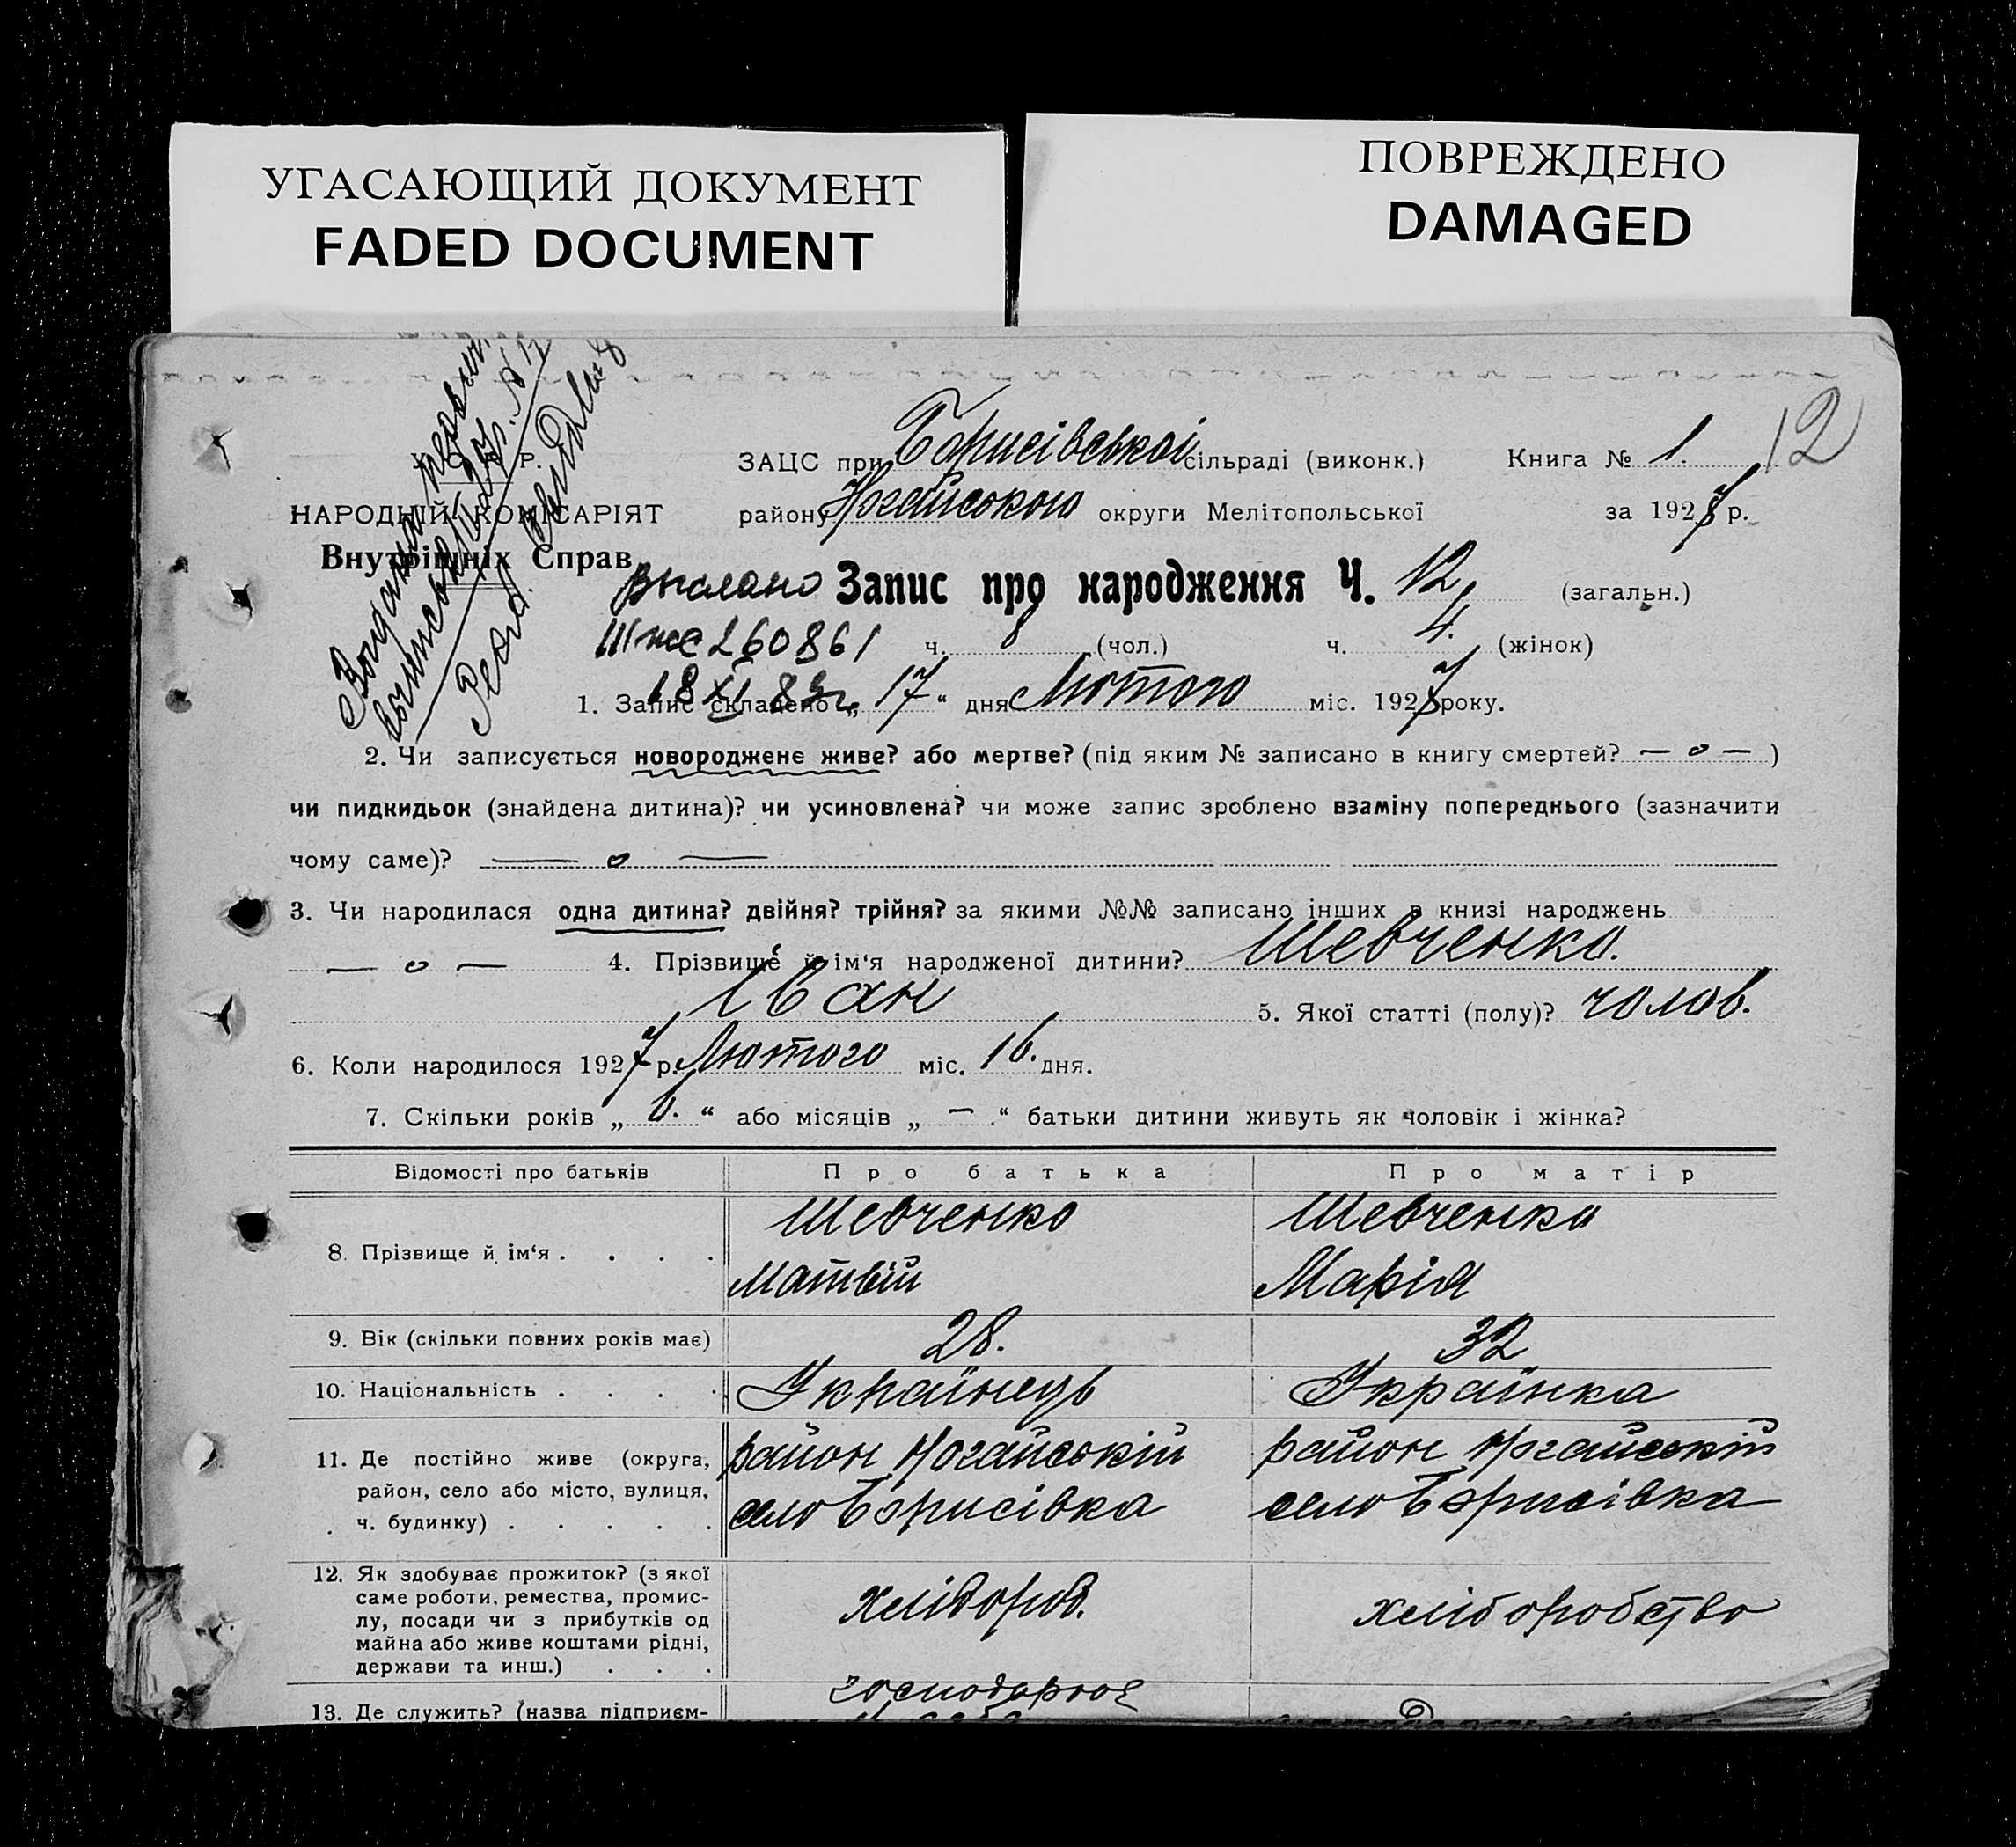 УГАСАЮЩИЙ ДОКУМЕНТ
FADED DOCUMENT
ПОВРЕЖДЕНО
DAMAGED
12
ЗАЦС при Борисівської сільраді (виконк.) Книга № 1.
НАРОДНІЙ КОМІСАРІЯТ
району Ногайського округи Мелітопольської за 1927 р.
Внутрішніх Справ
Выслано
Запис про народження Ч. 12 (загальн.)
260861 ч. 8 (чол.) ч. 4. (жінок)
18 XI 83г.
1. Запис складено „ 17 “ дня Лютого міс. 1927 року.
2. Чи записується новороджене живе? або мертве? (під яким № записано в книгу смертей? — о — )
чи пидкидьок (знайдена дитина)? чи усиновлена? чи може запис зроблено взаміну попереднього (зазначити
чому саме)? — о —
3. Чи народилася одна дитина? двійня? трійня? за якими №№ записано інших в книзі народжень
— о — 4. Прізвище й ім‘я народженої дитини? Шевченко.
Іван 5. Якої статті (полу)? чолов.
6. Коли народилося 1927 р. Лютого міс. 16. дня.
7. Скільки років „ 6. “ або місяців „ — “ батьки дитини живуть як чоловік і жінка?
Відомості про батьків Про батька Про матір
8. Прізвище й ім‘я . . . . Шевченко Шевченко
Матвій Марія
9. Вік (скільки повних років має) 28. 32
10. Національність . . . . Українець Українка
11. Де постійно живе (округа, район Ногайській район Ногайській
район, село або місто, вулиця, село Борисівка село Борисівка
ч. будинку) . . . . .
12. Як здобуває прожиток? (з якої
саме роботи, ремества, промис- хлібороб. хліборобство
лу, посади чи з прибутків од
майна або живе коштами рідні,
держави та инш.) . . .
13. Де служить? (назва підприєм-